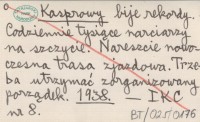 Kasprowy bije rekordy.
Codziennie tysiące narciarzy
na szczycie. Nareszcie nowo-
czesna trasa zjazdowa. Trze-
ba utrzymać zorganizowany
porządek. 1938. — IKC
nr 8.
BT/025/0176